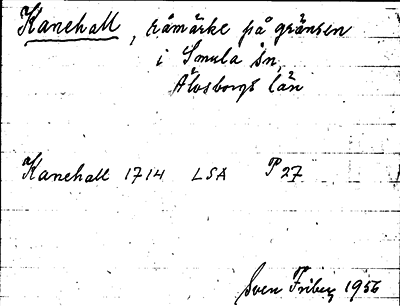 Kanehall, råmärke på gränsen
i Smula sn,
Älvsborgs län
Kanehall 1714 LSA P27
Sven Friberg 1956